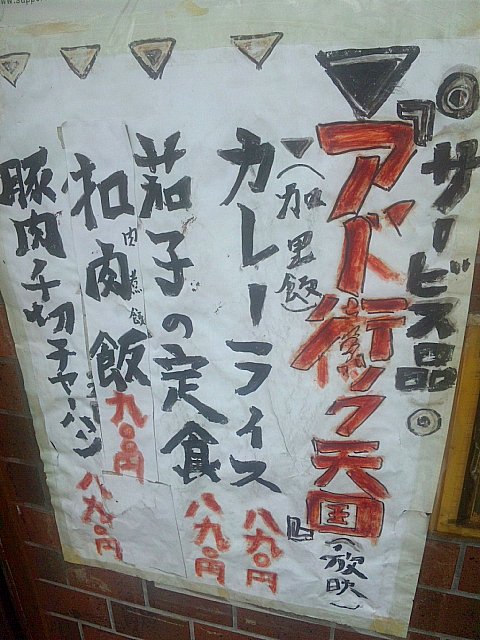 ◎サービス品◎
『アド街ック天国』(放映)
(加里飯)
カレーライス 八九〇円
茄子の定食 八九〇円
扣肉飯 九〇〇円
肉煮飯
豚肉千切チャーハン 八九〇円